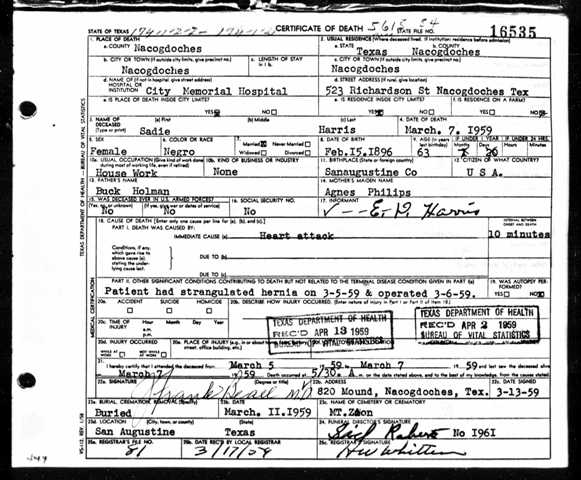 STATE OF TEXAS CERTIFICATE OF DEATH STATE FILE NO. 16535
1. PLACE OF DEATH 2. USUAL RESIDENCE (Where deceased lived. If institution: residence before admission)
a. COUNTY Nacogdoches a. STATE Texas b. COUNTY Nacogdoches
b. CITY OR TOWN (If outside city limits, give precinct no.) c. LENGTH OF STAY in 1b. c. CITY OR TOWN (If outside city limits, give precinct no.)
Nacogdoches Nacogdoches
d. NAME OF (If not in hospital, give street address) HOSPITAL OR INSTITUTION City Memorial Hospital d. STREET ADDRESS (If rural, give location) 523 Richardson St Nacogdoches Tex
e. IS PLACE OF DEATH INSIDE CITY LIMITS? YES NO e. IS RESIDENCE INSIDE CITY LIMITS? YES NO f. IS RESIDENCE ON A FARM? YES NO
3. NAME OF DECEASED (Type or print) (a) First (b) Middle (c) Last 4. DATE OF DEATH
Sadie Harris March. 7. I959
5. SEX 6. COLOR OR RACE 7. Married Never Married Widowed Divorced 8. DATE OF BIRTH 9. AGE (In years last birthday) IF UNDER 1 YEAR IF UNDER 24 HRS.
Female Negro Feb.I5.I896 63 Months Days Hours Minutes
10a. USUAL OCCUPATION (Give kind of work done during most of working life, even if retired) 10b. KIND OF BUSINESS OR INDUSTRY 11. BIRTHPLACE (State or foreign country) 12. CITIZEN OF WHAT COUNTRY?
House Work None Sanaugustine Co U S A.
13. FATHER'S NAME 14. MOTHER'S MAIDEN NAME
Buck Holman Agnes Philips
15. WAS DECEASED EVER IN U.S. ARMED FORCES? 16. SOCIAL SECURITY NO. 17. INFORMANT
(Yes, no, or unknown) (If yes, give war or dates of service)
No No No Harris
18. CAUSE OF DEATH [Enter only one cause per line for (a), (b), and (c).] INTERVAL BETWEEN ONSET AND DEATH
PART I. DEATH WAS CAUSED BY:
IMMEDIATE CAUSE (a) Heart attack 10 minutes
Conditions, if any, which gave rise to above cause (a) stating the underlying cause last.
DUE TO (b)
DUE TO (c)
PART II. OTHER SIGNIFICANT CONDITIONS CONTRIBUTING TO DEATH BUT NOT RELATED TO THE TERMINAL DISEASE CONDITION GIVEN IN PART I(a) 19. WAS AUTOPSY PERFORMED?
Patient had strangulated hernia on 3-5-59 & operated 3-6-59. YES NO
20a. ACCIDENT SUICIDE HOMICIDE 20b. DESCRIBE HOW INJURY OCCURRED. (Enter nature of injury in Part I or Part II of Item 18)
20c. TIME OF INJURY Hour Month Day Year a.m. p.m.
TEXAS DEPARTMENT OF HEALTH
REC'D APR 13 1959
TEXAS DEPARTMENT OF HEALTH
REC'D APR 2 1959
BUREAU OF VITAL STATISTICS
20d. INJURY OCCURRED 20e. PLACE OF INJURY
21. I hereby certify that I attended the deceased from March 5 59 March 7 59 and last saw the deceased alive
March 7 59 Death occurred at 5/30 A m. on the date stated above, and to the best of my knowledge, from the causes stated.
22a. SIGNATURE (Degree or title) 22b. ADDRESS 22c. DATE SIGNED
Frank 820 Mound, Nacogdoches, Tex. 3-13-59
23a. BURIAL, CREMATION, REMOVAL (Specify) 23b. DATE 23c. NAME OF CEMETERY OR CREMATORY
Buried March. II.I959 MT.Zion
23d. LOCATION (City, town, or county) (State) 24. FUNERAL DIRECTOR'S SIGNATURE
San Augustine Texas No I96I
25a. REGISTRAR'S FILE NO. 25b. DATE REC'D BY LOCAL REGISTRAR 25c. REGISTRAR'S SIGNATURE
81 3/17/59
TEXAS DEPARTMENT OF HEALTH — BUREAU OF VITAL STATISTICS
MEDICAL CERTIFICATION